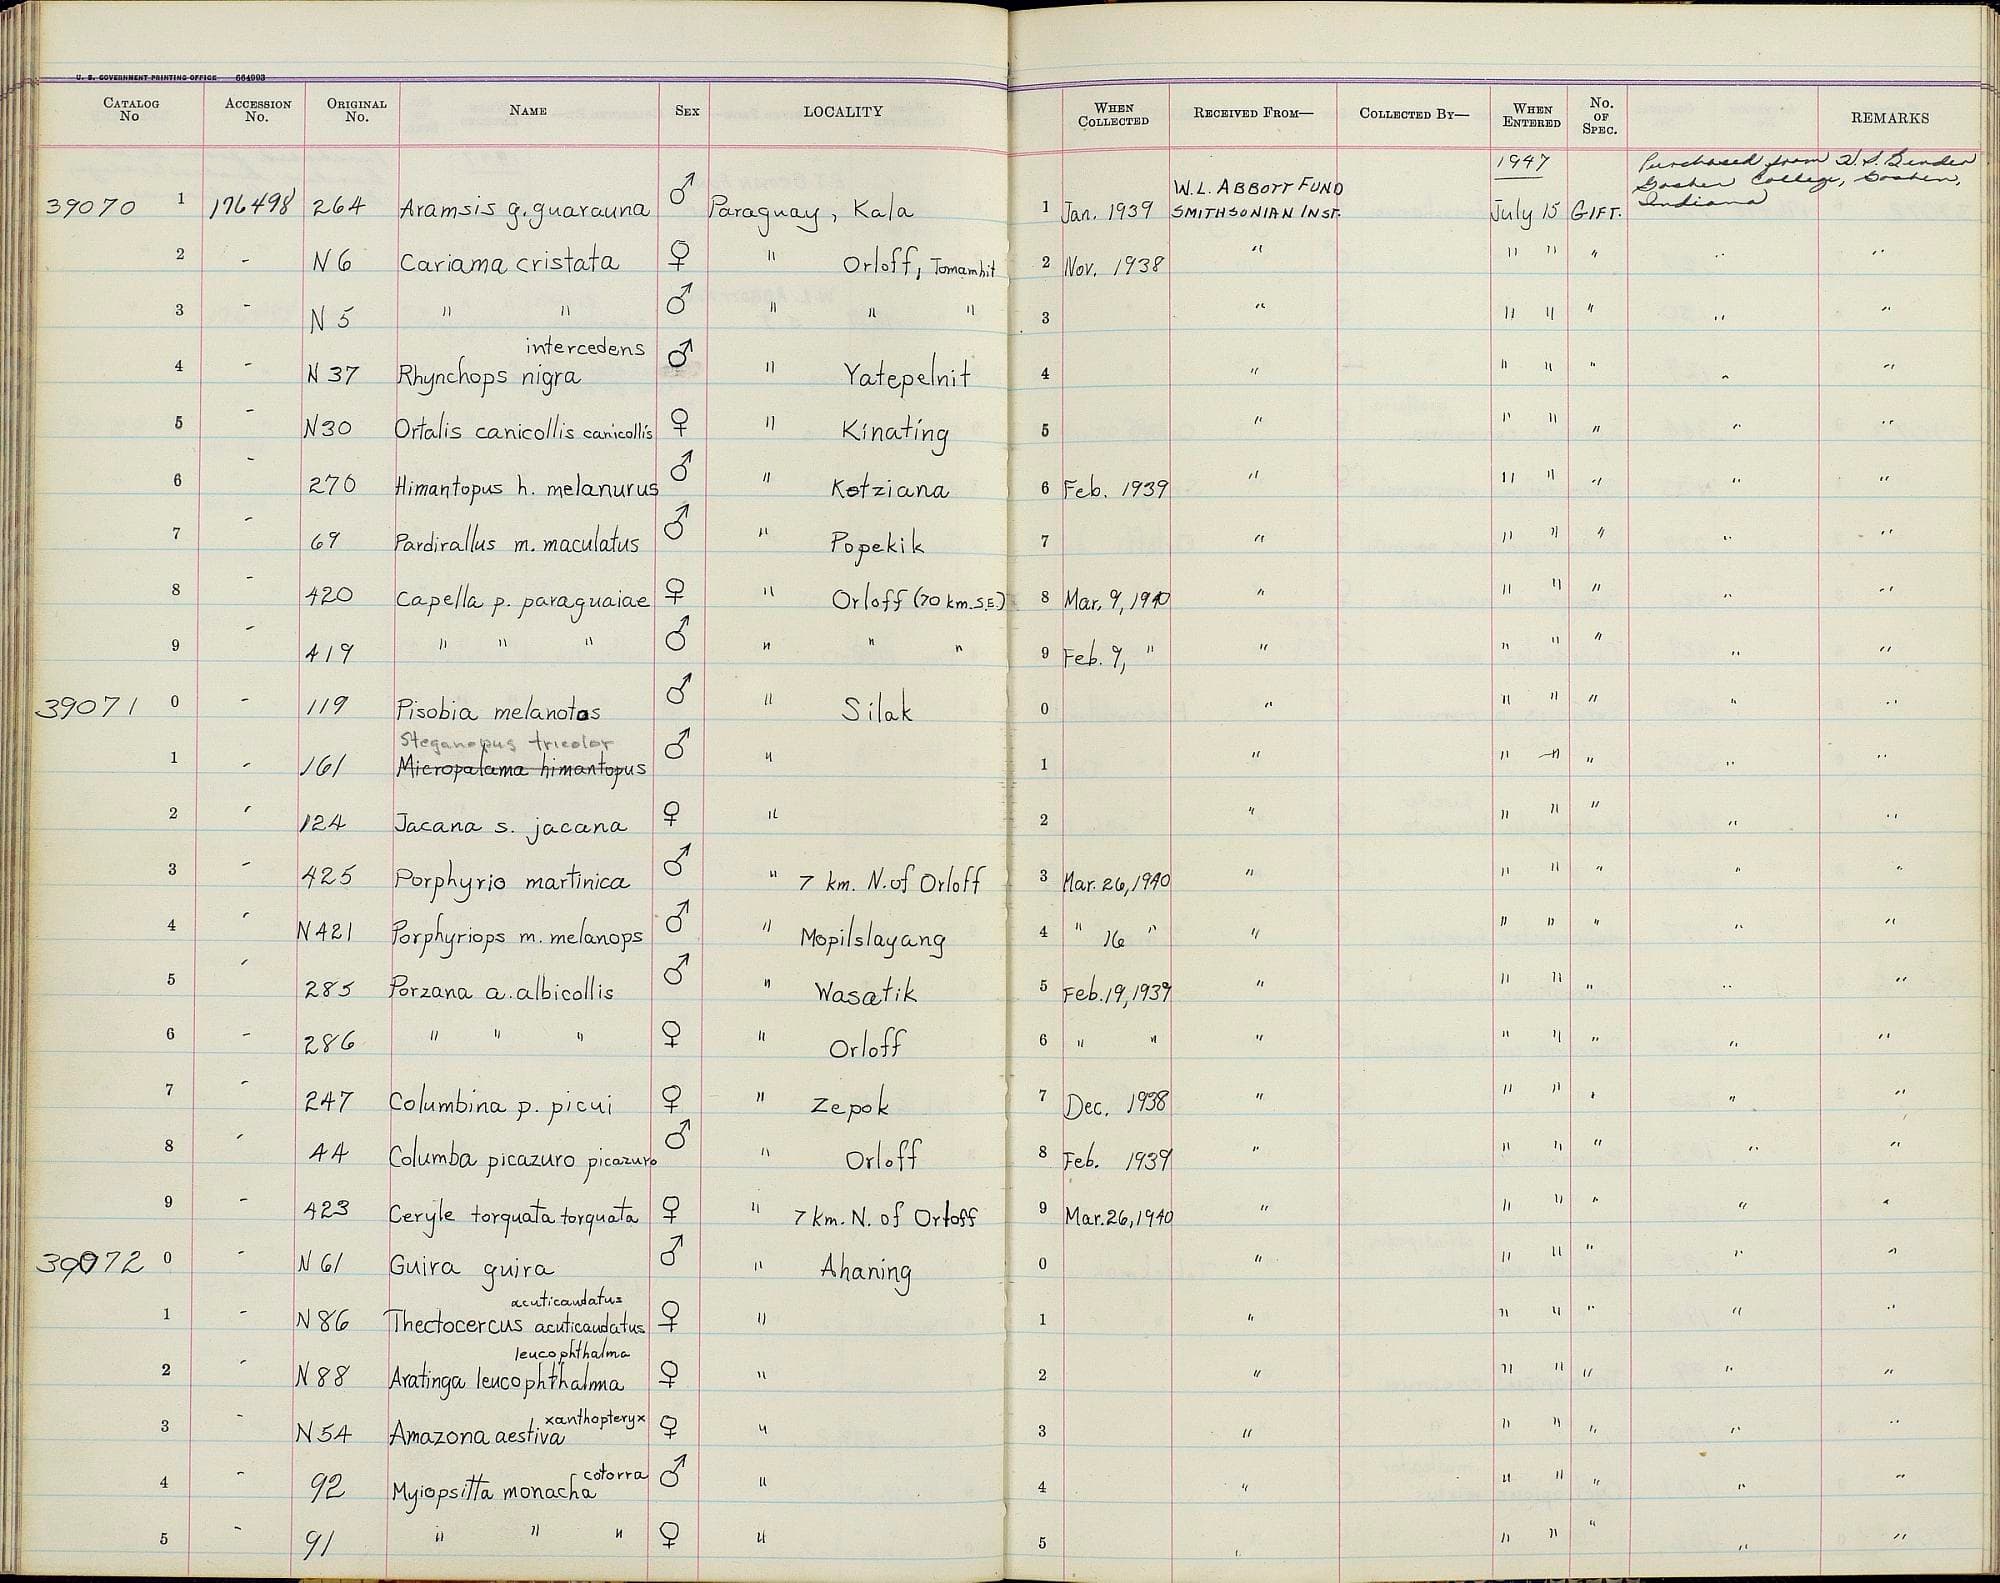 U. S. GOVERNMENT PRINTING OFFICE 664993
CATALOG No ACCESSION No. ORIGINAL No. NAME SEX LOCALITY WHEN COLLECTED RECEIVED FROM— COLLECTED BY— WHEN ENTERED No. OF SPEC. REMARKS
1947 Purchased from H. S. Bender
W. L. ABBOTT FUND Goshen College, Goshen,
39070 1 176498 264 Aramsis g. guarauna ♂ Paraguay, Kala 1 Jan. 1939 SMITHSONIAN INST. July 15 GIFT. Indiana
2 - N 6 Cariama cristata ♀ " Orloff, Tomamhit 2 Nov. 1938 " " " " " "
3 - N 5 " " ♂ " " " 3 " " " " " "
intercedens
4 - N 37 Rhynchops nigra ♂ " Yatepelnit 4 " " " " " "
5 - N30 Ortalis canicollis canicollis ♀ " Kinating 5 " " " " " "
6 - 270 Himantopus h. melanurus ♂ " Kotziana 6 Feb. 1939 " " " " " "
7 - 69 Pardirallus m. maculatus ♂ " Popekik 7 " " " " " "
8 - 420 Capella p. paraguaiae ♀ " Orloff (70 km. S.E.) 8 Mar. 9, 1940 " " " " " "
9 - 419 " " " ♂ " " " 9 Feb. 9, " " " " " " "
39071 0 - 119 Pisobia melanotos ♂ " Silak 0 " " " " " "
Steganopus tricolor
1 - 161 Micropalama himantopus ♂ " 1 " " " " " "
2 - 124 Jacana s. jacana ♀ " 2 " " " " " "
3 - 425 Porphyrio martinica ♂ " 7 km. N. of Orloff 3 Mar. 26, 1940 " " " " " "
4 - N421 Porphyriops m. melanops ♂ " Mopilslayang 4 " 16 " " " " " " "
5 - 285 Porzana a. albicollis ♂ " Wasatik 5 Feb. 19, 1939 " " " " " "
6 - 286 " " " ♀ " Orloff 6 " " " " " " " "
7 - 247 Columbina p. picui ♀ " Zepok 7 Dec. 1938 " " " " " "
8 - 44 Columba picazuro picazuro ♂ " Orloff 8 Feb. 1939 " " " " " "
9 - 423 Ceryle torquata torquata ♀ " 7 km. N. of Orloff 9 Mar. 26, 1940 " " " " " "
39072 0 - N 61 Guira guira ♂ " Ahaning 0 " " " " " "
acuticaudatus
1 - N 86 Thectocercus acuticaudatus ♀ " 1 " " " " " "
leucophthalma
2 - N 88 Aratinga leucophthalma ♀ " 2 " " " " " "
xanthopteryx
3 - N 54 Amazona aestiva ♀ " 3 " " " " " "
cotorra
4 - 92 Myiopsitta monacha ♂ " 4 " " " " " "
5 - 91 " " " ♀ " 5 " " " " " "